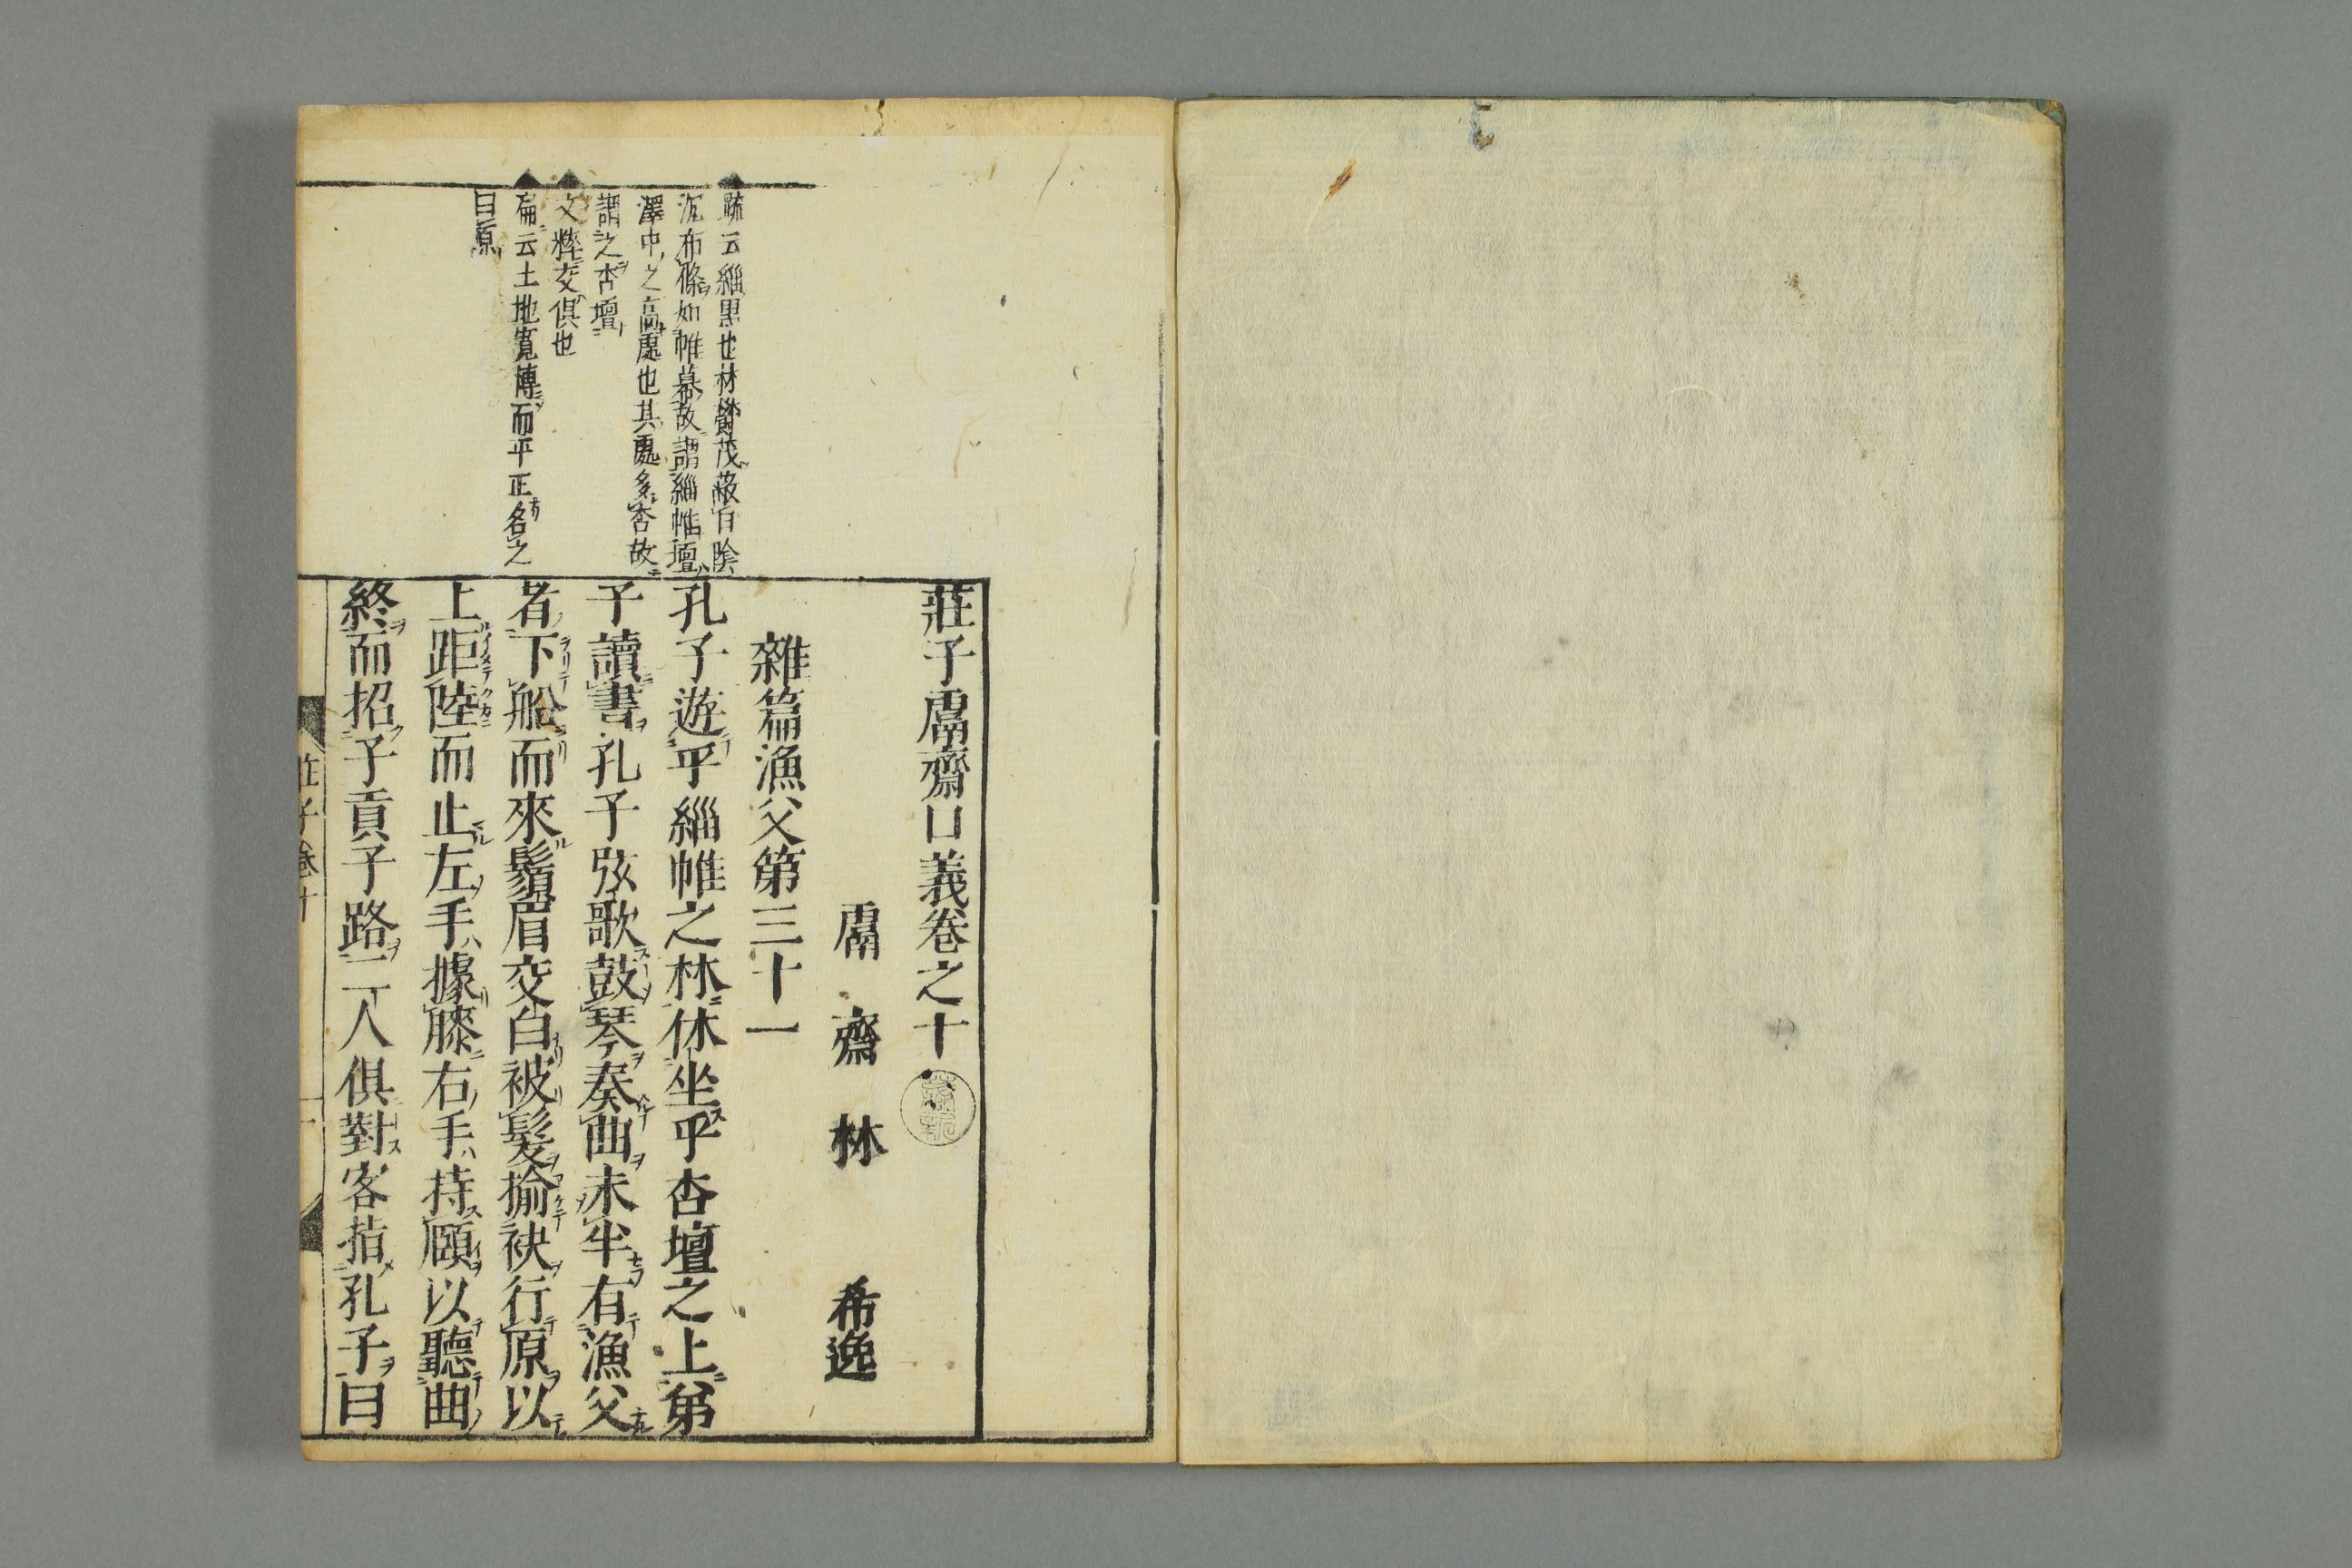 莊子鬳齋口義卷之十
鬳齋林希逸
雜篇漁父第三十一
孔子遊乎緇帷之林休坐乎杏壇之上弟
子讀書孔子弦歌鼓琴奏曲未半有漁父
者下船而來鬚眉交白被髮揄袂行原以
上距陸而止左手據膝右手持頤以聽曲
終而招子貢子路二人俱對客指孔子曰
疏云緇黑也林欝茂蔽日陰
沉布條如帷幕故謂緇帷壇
澤中之高處也其處多杏故
謂之杏壇
文粹交俱也
云土地寬博而平正名之
曰原
莊子卷十
一